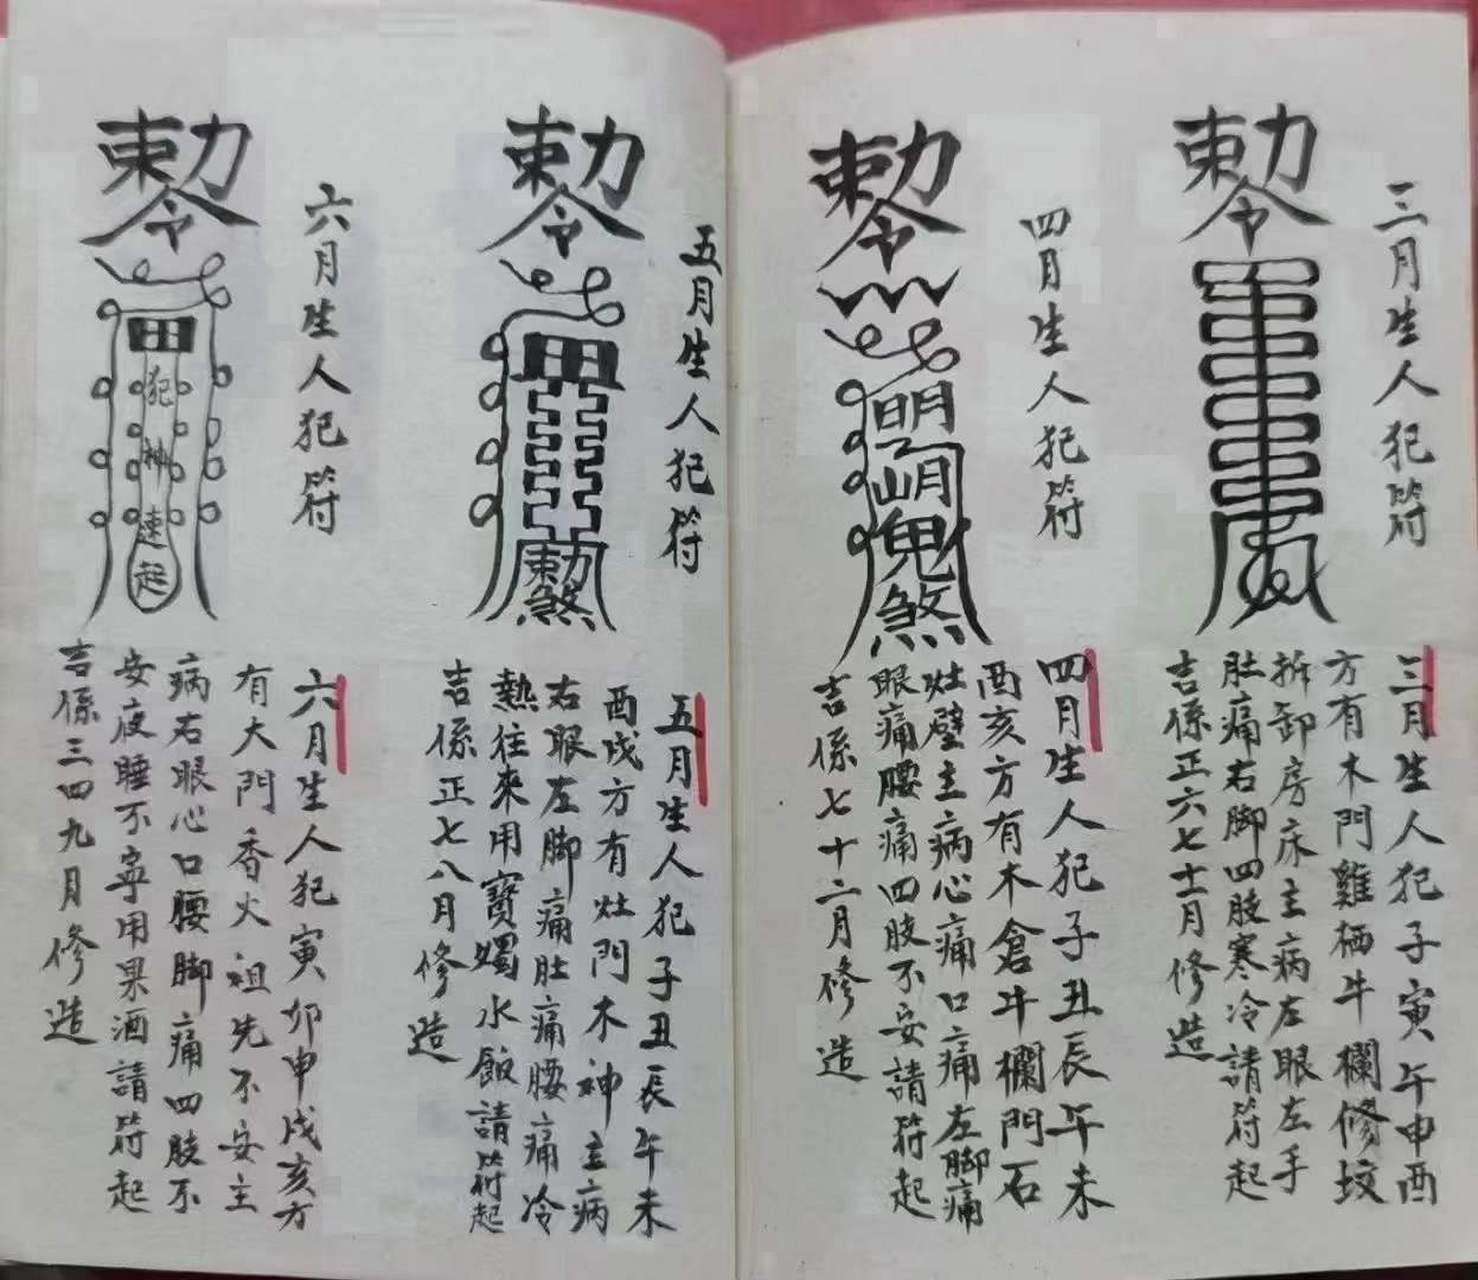 三月生人犯符
勅令
三月生人犯子寅午申酉
方有木門雞栖牛欄修坟
拆卸房床主病左眼左手
肚痛右脚四肢寒冷請符起
吉係正六七十一月修造
四月生人犯符
勅令
明
明
鬼
煞
四月生人犯子丑辰午未
酉亥方有木倉牛欄門石
灶壁主病心痛口痛左脚痛
眼痛腰痛四肢不妥請符起
吉係七十二月修造
五月生人犯符
勅令
勅
煞
五月生人犯子丑辰午未
酉戌方有灶門木神主病
右眼左脚痛肚痛腰痛冷
熱往來用寶燭水飯請符起
吉係正七八月修造
六月生人犯符
勅令
田
犯
神
速
起
六月生人犯寅卯申戌亥方
有大門香火祖先不安主
病右眼心口腰脚痛四肢不
安夜睡不寧用果酒請符起
吉係三四九月修造